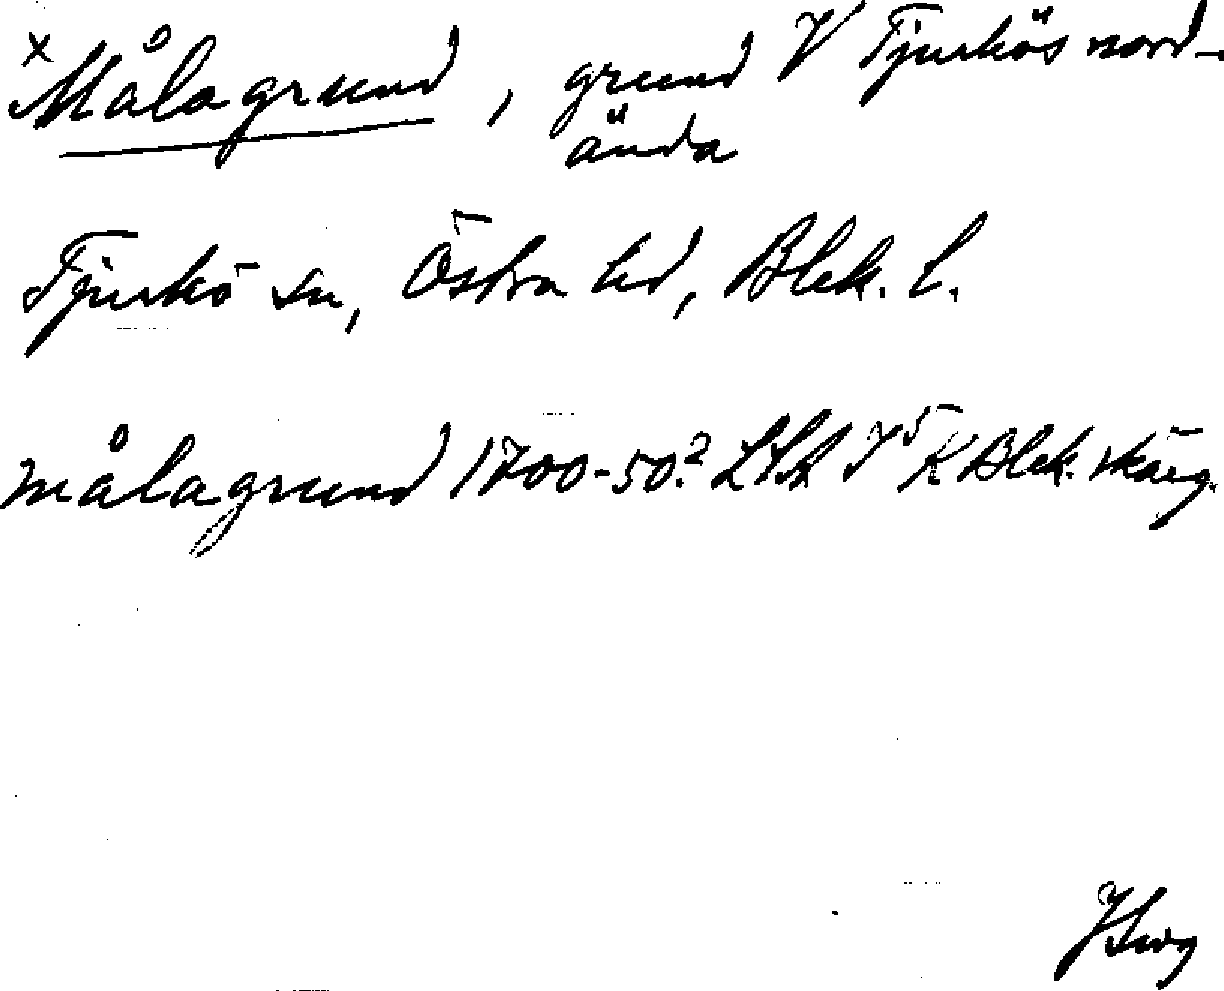 x Målagrund, grund V Tjurkös nord-
ända
Tjurkö sn, Östra hd, Blek. l.
målagrund 1700-50? K Blek. skärg.